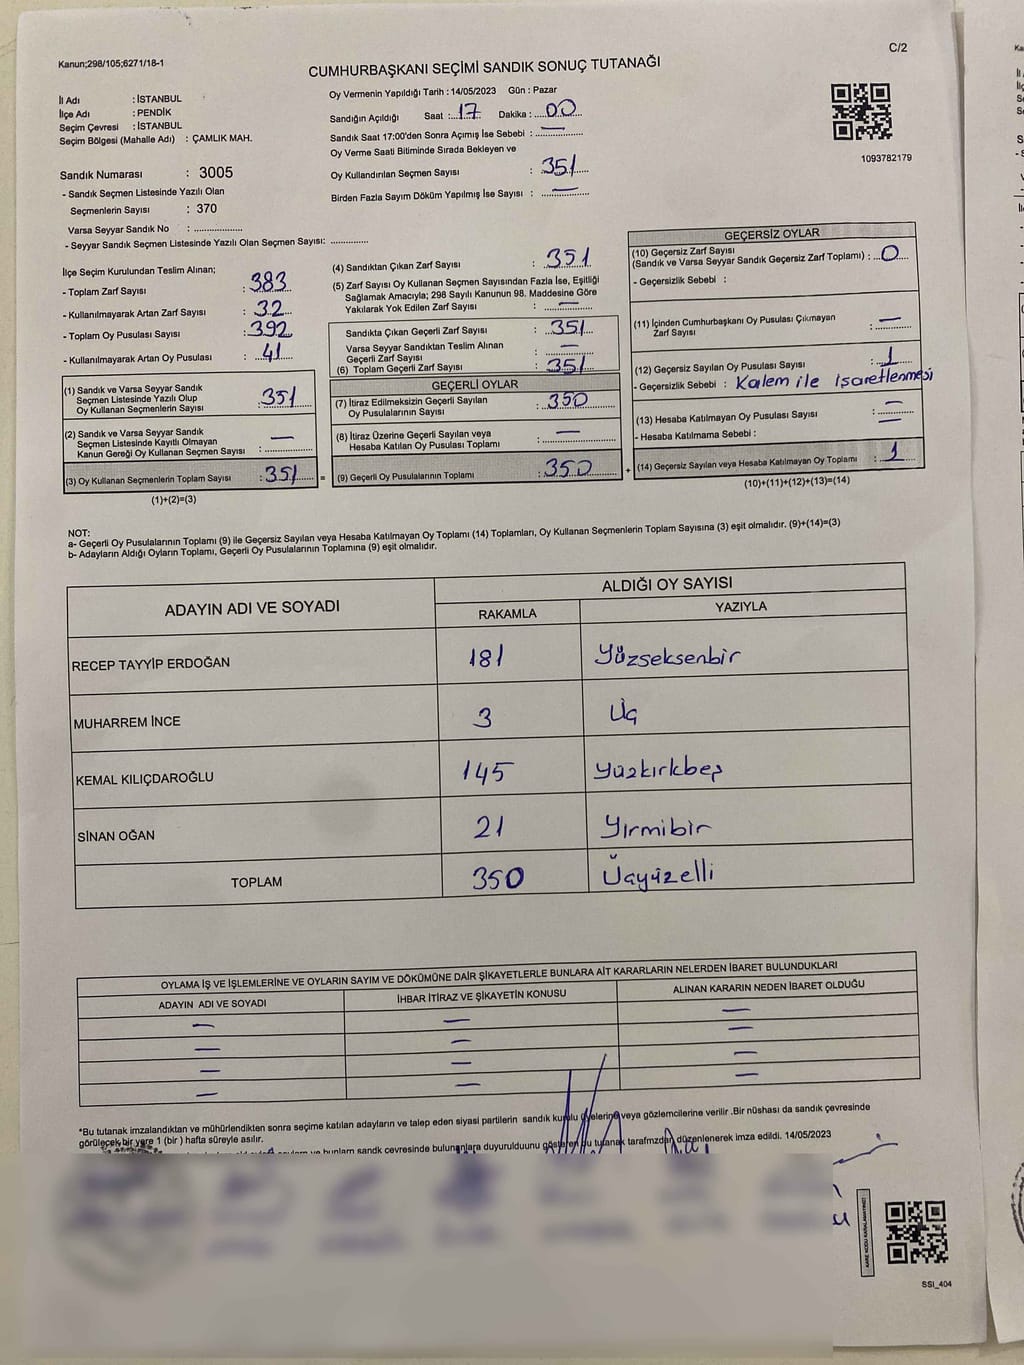 Kanun;298/105;6271/18-1
C/2
CUMHURBAŞKANI SEÇİMİ SANDIK SONUÇ TUTANAĞI
İl Adı : İSTANBUL
İlçe Adı : PENDİK
Seçim Çevresi : İSTANBUL
Seçim Bölgesi (Mahalle Adı) : ÇAMLIK MAH.
Sandık Numarası : 3005
- Sandık Seçmen Listesinde Yazılı Olan
Seçmenlerin Sayısı : 370
Varsa Seyyar Sandık No : ..................
- Seyyar Sandık Seçmen Listesinde Yazılı Olan Seçmen Sayısı: ..............
Oy Vermenin Yapıldığı Tarih : 14/05/2023 Gün : Pazar
Sandığın Açıldığı Saat :..17.. Dakika :....00..
Sandık Saat 17:00'den Sonra Açımış İse Sebebi : —
Oy Verme Saati Bitiminde Sırada Bekleyen ve
Oy Kullandırılan Seçmen Sayısı : 351
Birden Fazla Sayım Döküm Yapılmış İse Sayısı : —
1093782179
İlçe Seçim Kurulundan Teslim Alınan;
- Toplam Zarf Sayısı : 383
- Kullanılmayarak Artan Zarf Sayısı : 32
- Toplam Oy Pusulası Sayısı : 392
- Kullanılmayarak Artan Oy Pusulası : 41
(1) Sandık ve Varsa Seyyar Sandık
Seçmen Listesinde Yazılı Olup
Oy Kullanan Seçmenlerin Sayısı : 351
(2) Sandık ve Varsa Seyyar Sandık
Seçmen Listesinde Kayıtlı Olmayan
Kanun Gereği Oy Kullanan Seçmen Sayısı : —
(3) Oy Kullanan Seçmenlerin Toplam Sayısı : 351 =
(1)+(2)=(3)
(4) Sandıktan Çıkan Zarf Sayısı : 351
(5) Zarf Sayısı Oy Kullanan Seçmen Sayısından Fazla İse, Eşitliği
Sağlamak Amacıyla; 298 Sayılı Kanunun 98. Maddesine Göre
Yakılarak Yok Edilen Zarf Sayısı : —
Sandıkta Çıkan Geçerli Zarf Sayısı : 351
Varsa Seyyar Sandıktan Teslim Alınan
Geçerli Zarf Sayısı : —
(6) Toplam Geçerli Zarf Sayısı : 351
GEÇERLİ OYLAR
(7) İtiraz Edilmeksizin Geçerli Sayılan
Oy Pusulalarının Sayısı : 350
(8) İtiraz Üzerine Geçerli Sayılan veya
Hesaba Katılan Oy Pusulası Toplamı : —
(9) Geçerli Oy Pusulalarının Toplamı : 350 +
GEÇERSİZ OYLAR
(10) Geçersiz Zarf Sayısı
(Sandık ve Varsa Seyyar Sandık Geçersiz Zarf Toplamı) : ..0..
- Geçersizlik Sebebi :
(11) İçinden Cumhurbaşkanı Oy Pusulası Çıkmayan
Zarf Sayısı : —
(12) Geçersiz Sayılan Oy Pusulası Sayısı : 1
- Geçersizlik Sebebi : Kalem ile İşaretlenmesi
(13) Hesaba Katılmayan Oy Pusulası Sayısı : —
- Hesaba Katılmama Sebebi : —
(14) Geçersiz Sayılan veya Hesaba Katılmayan Oy Toplamı : 1
(10)+(11)+(12)+(13)=(14)
NOT:
a- Geçerli Oy Pusulalarının Toplamı (9) ile Geçersiz Sayılan veya Hesaba Katılmayan Oy Toplamı (14) Toplamları, Oy Kullanan Seçmenlerin Toplam Sayısına (3) eşit olmalıdır. (9)+(14)=(3)
b- Adayların Aldığı Oyların Toplamı, Geçerli Oy Pusulalarının Toplamına (9) eşit olmalıdır.
ADAYIN ADI VE SOYADI
ALDIĞI OY SAYISI
RAKAMLA YAZIYLA
RECEP TAYYİP ERDOĞAN 181 Yüzseksenbir
MUHARREM İNCE 3 Üç
KEMAL KILIÇDAROĞLU 145 Yüzkırkbeş
SİNAN OĞAN 21 Yirmibir
TOPLAM 350 Üçyüzelli
OYLAMA İŞ VE İŞLEMLERİNE VE OYLARIN SAYIM VE DÖKÜMÜNE DAİR ŞİKAYETLERLE BUNLARA AİT KARARLARIN NELERDEN İBARET BULUNDUKLARI
ADAYIN ADI VE SOYADI İHBAR İTİRAZ VE ŞİKAYETİN KONUSU ALINAN KARARIN NEDEN İBARET OLDUĞU
— — —
— — —
— — —
— — —
*Bu tutanak imzalandıktan ve mühürlendikten sonra seçime katılan adayların ve talep eden siyasi partilerin sandık kurulu üyelerine veya gözlemcilerine verilir .Bir nüshası da sandık çevresinde
görülecek bir yere 1 (bir ) hafta süreyle asılır.
ve bunların sandık çevresinde bulunanlara duyurulduunu gösteren bu tutanak tarafmzdan düzenlenerek imza edildi. 14/05/2023
SSI_404